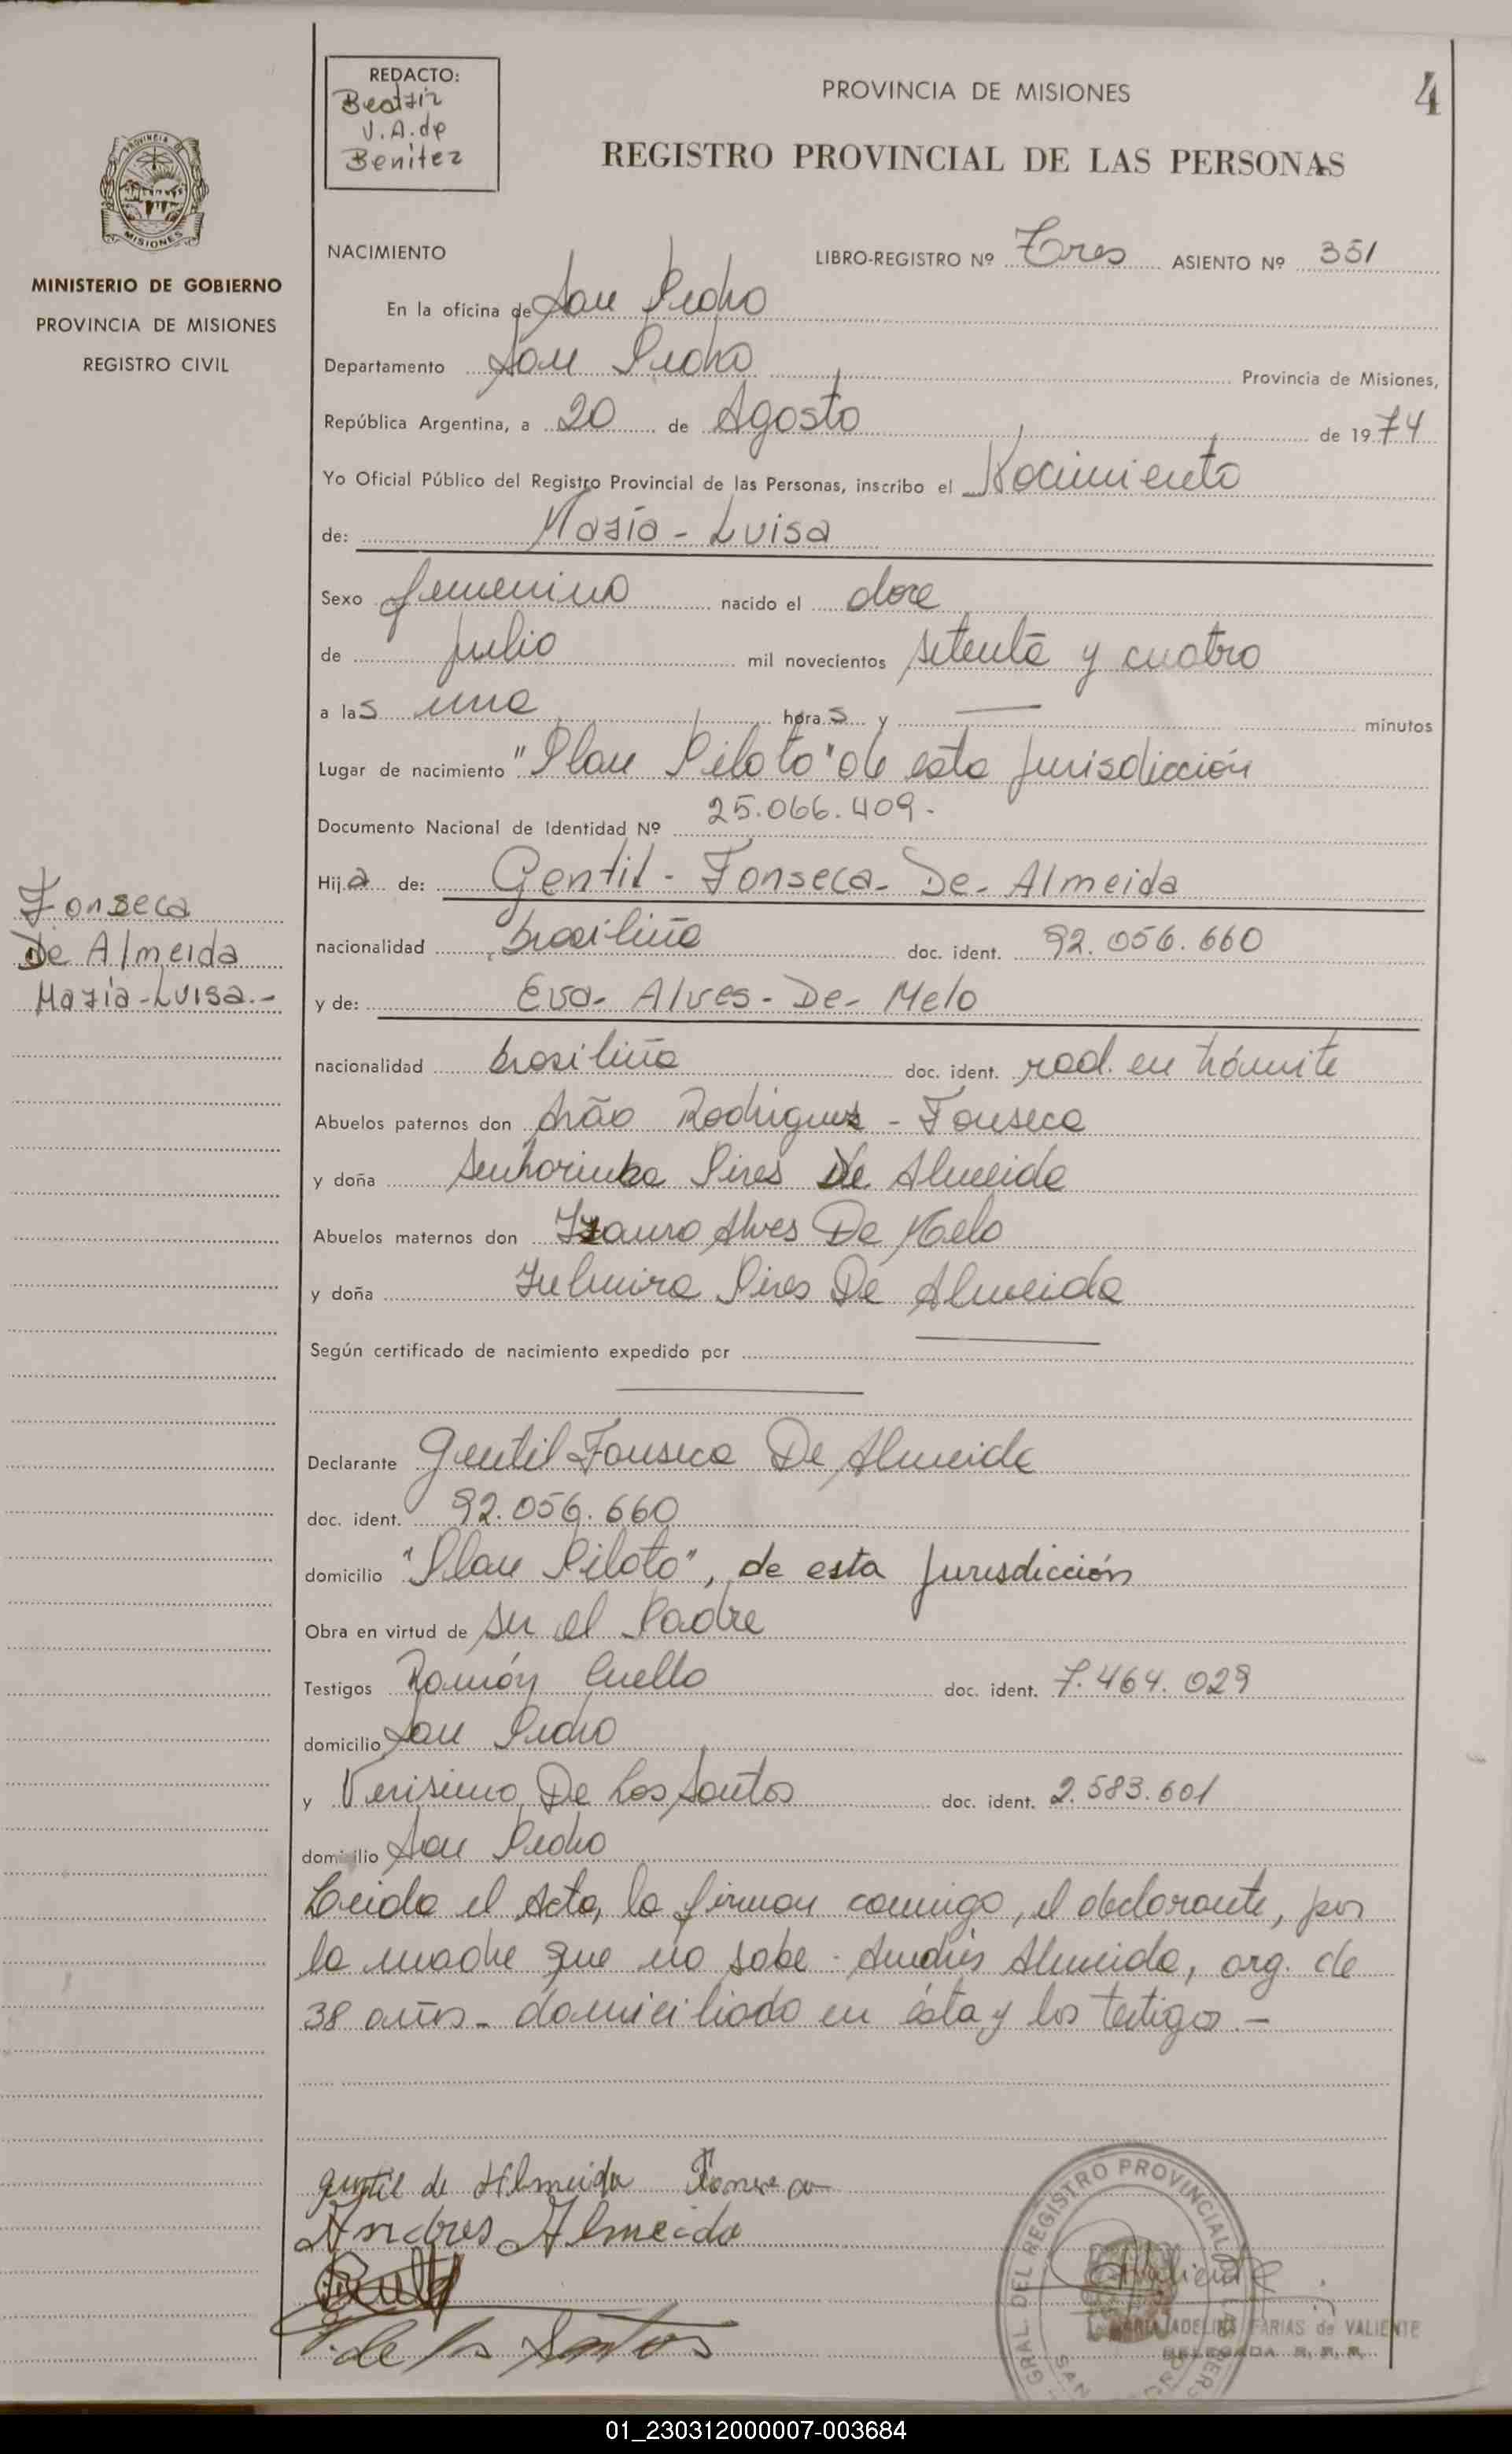 REDACTO:
Beatriz
V.A. de
Benitez
PROVINCIA DE MISIONES
4
REGISTRO PROVINCIAL DE LAS PERSONAS
PROVINCIA DE
MISIONES
MINISTERIO DE GOBIERNO
PROVINCIA DE MISIONES
REGISTRO CIVIL
NACIMIENTO LIBRO-REGISTRO Nº Tres ASIENTO Nº 351
En la oficina de San Pedro
Departamento San Pedro Provincia de Misiones,
República Argentina, a 20 de Agosto de 1974
Yo Oficial Público del Registro Provincial de las Personas, inscribo el Nacimiento
de: María - Luisa
Sexo femenino nacido el doce
de julio mil novecientos setenta y cuatro
a las una horas y — minutos
Lugar de nacimiento "Plan Piloto" de esta Jurisdicción
Documento Nacional de Identidad Nº 25.066.409.-
Hija de: Gentil - Fonseca - De - Almeida
nacionalidad brasileña doc. ident. 92.056.660
y de: Eva - Alves - De - Melo
nacionalidad brasileña doc. ident. rad. en trámite
Abuelos paternos don Adão Rodrigues - Fonseca
y doña Senhorinha Pires De Almeida
Abuelos maternos don Izauro Alves De Melo
y doña Pires De Almeida
Fonseca
De Almeida
María-Luisa.-
Según certificado de nacimiento expedido por —
—
Declarante Gentil Fonseca De Almeida
doc. ident. 92.056.660
domicilio "Plan Piloto", de esta Jurisdicción
Obra en virtud de ser el Padre
Testigos Ramón Cuello doc. ident. 7.464.029
domicilio San Pedro
y Verisimo De Los Santos doc. ident. 2.583.601
domicilio San Pedro
Leida el Acta, la firman conmigo, el declarante, por
la madre que no sabe - Andrés Almeida, arg. de
38 años - domiciliado en ésta y los testigos.-
gentil de Almeida Fonseca
Andres Almeida
V. de los Santos
GRAL. DEL REGISTRO PROVINCIAL DE LAS PERS
SAN PEDRO
Valiente
MARIA ADELINA FARIAS de VALIENTE
DELEGADA R. P. P.
01_230312000007-003684